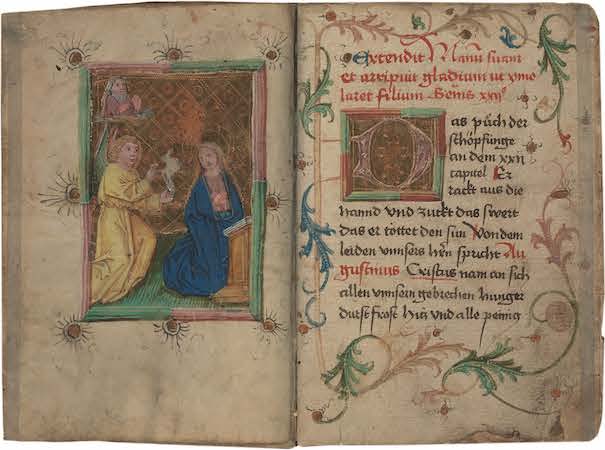 Extendit Manū suam
et arripuit gladium ut ymo
laret filium Geñs xxijº
Das půch der
schöpfunge
an dem xxii
capitel Er
rackt aus die
hannd vnd zuckt das swert
das er tottet den sun Von dem
leiden vnnsers hēn spricht Au
gustinius Cristus nam an sich
allen vnnsern gebrechen hunger
durst frost hicz vnd alle peinig